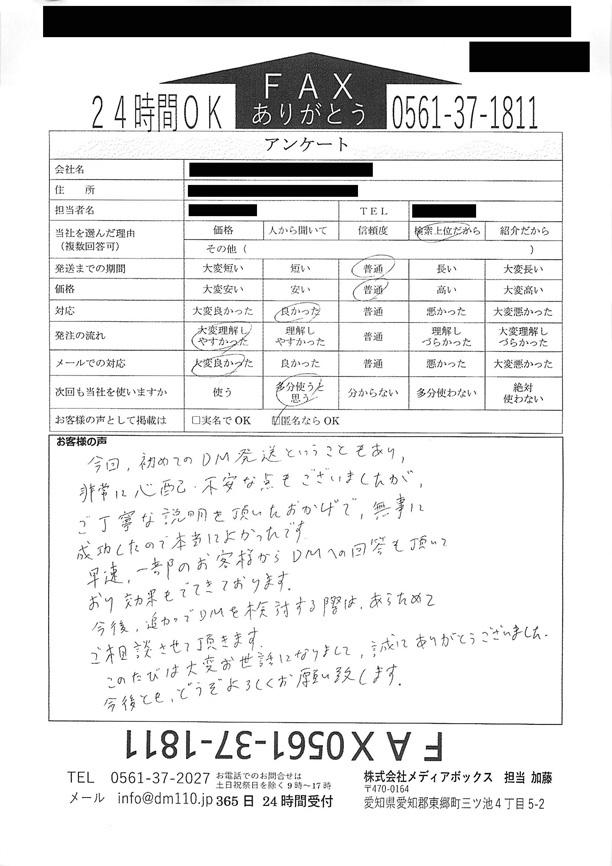 FAX
ありがとう
24時間OK
0561-37-1811
アンケート
会社名
住 所
担当者名 TEL
当社を選んだ理由（複数回答可） 価格 人から聞いて 信頼度 検索上位だから 紹介だから
その他（ ）
発送までの期間 大変短い 短い 普通 長い 大変長い
価格 大変安い 安い 普通 高い 大変高い
対応 大変良かった 良かった 普通 悪かった 大変悪かった
発注の流れ 大変理解しやすかった 理解しやすかった 普通 理解しづらかった 大変理解しづらかった
メールでの対応 大変良かった 良かった 普通 悪かった 大変悪かった
次回も当社を使いますか 使う 多分使うと思う 分からない 多分使わない 絶対使わない
お客様の声として掲載は □実名でOK ☑匿名ならOK
お客様の声
今回、初めてのDM発送ということもあり、
非常に心配・不安な点もございましたが、
ご丁寧な説明を頂いたおかげで、無事に
成功したので本当によかったです。
早速、一部のお客様からDMへの回答も頂いて
おり効果もでてきております。
今後、追加でDMを検討する際は、あらためて
ご相談させて頂きます。
このたびは大変お世話になりまして、誠にありがとうございました。
今後とも、どうぞよろしくお願い致します。
FAX0561-37-1811
TEL 0561-37-2027 お電話でのお問合せは
土日祝祭日を除く9時～17時
メール info@dm110.jp 365日 24時間受付
株式会社メディアボックス 担当 加藤
〒470-0164
愛知県愛知郡東郷町三ツ池4丁目5-2